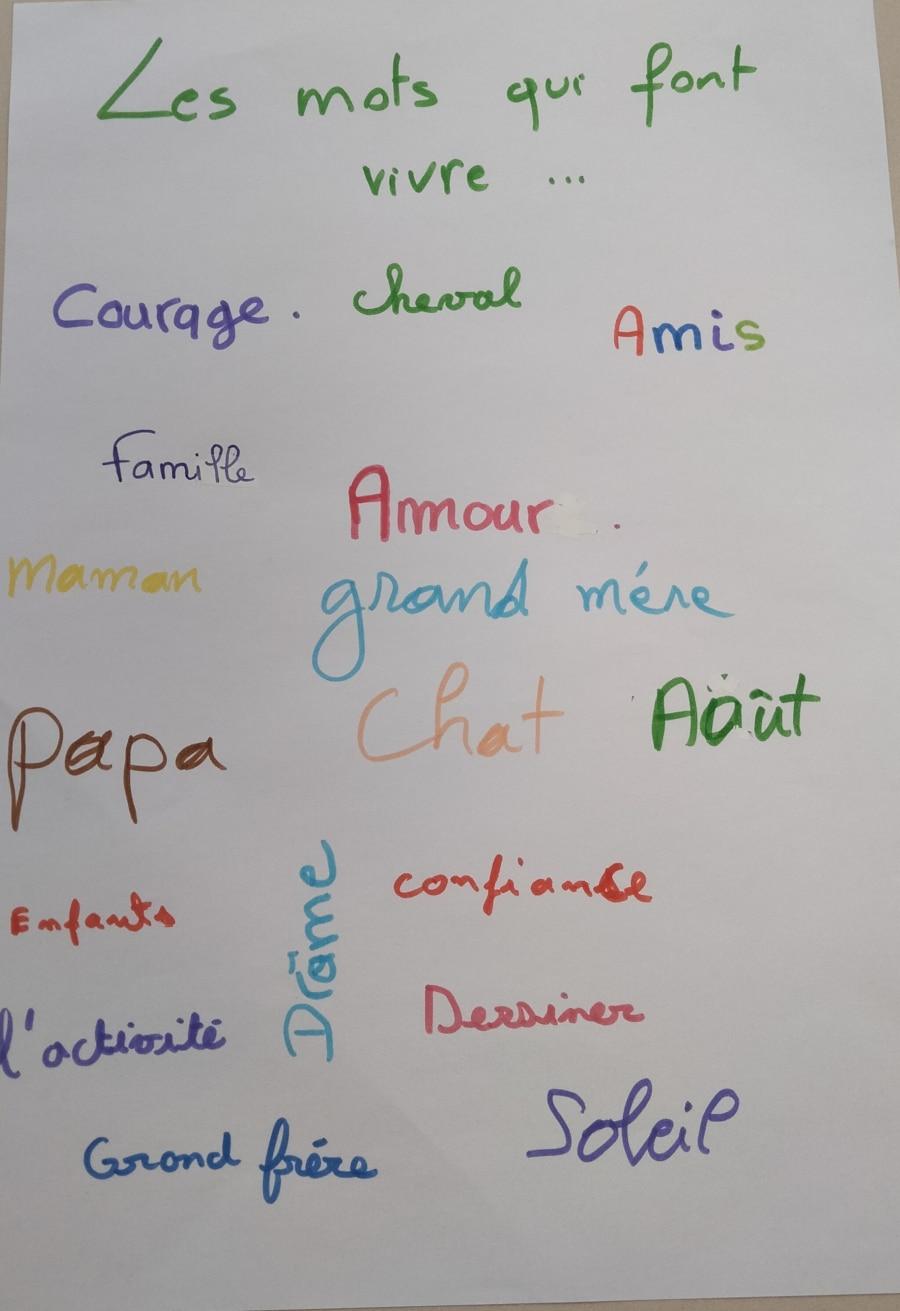 Les mots qui font
vivre ...
Courage. cheval
Amis
famille
Amour.
Maman
grand mére
Chat Août
Papa
confiance
Enfants
Drôme
Dessiner
l'activité
Soleil
Grand frére